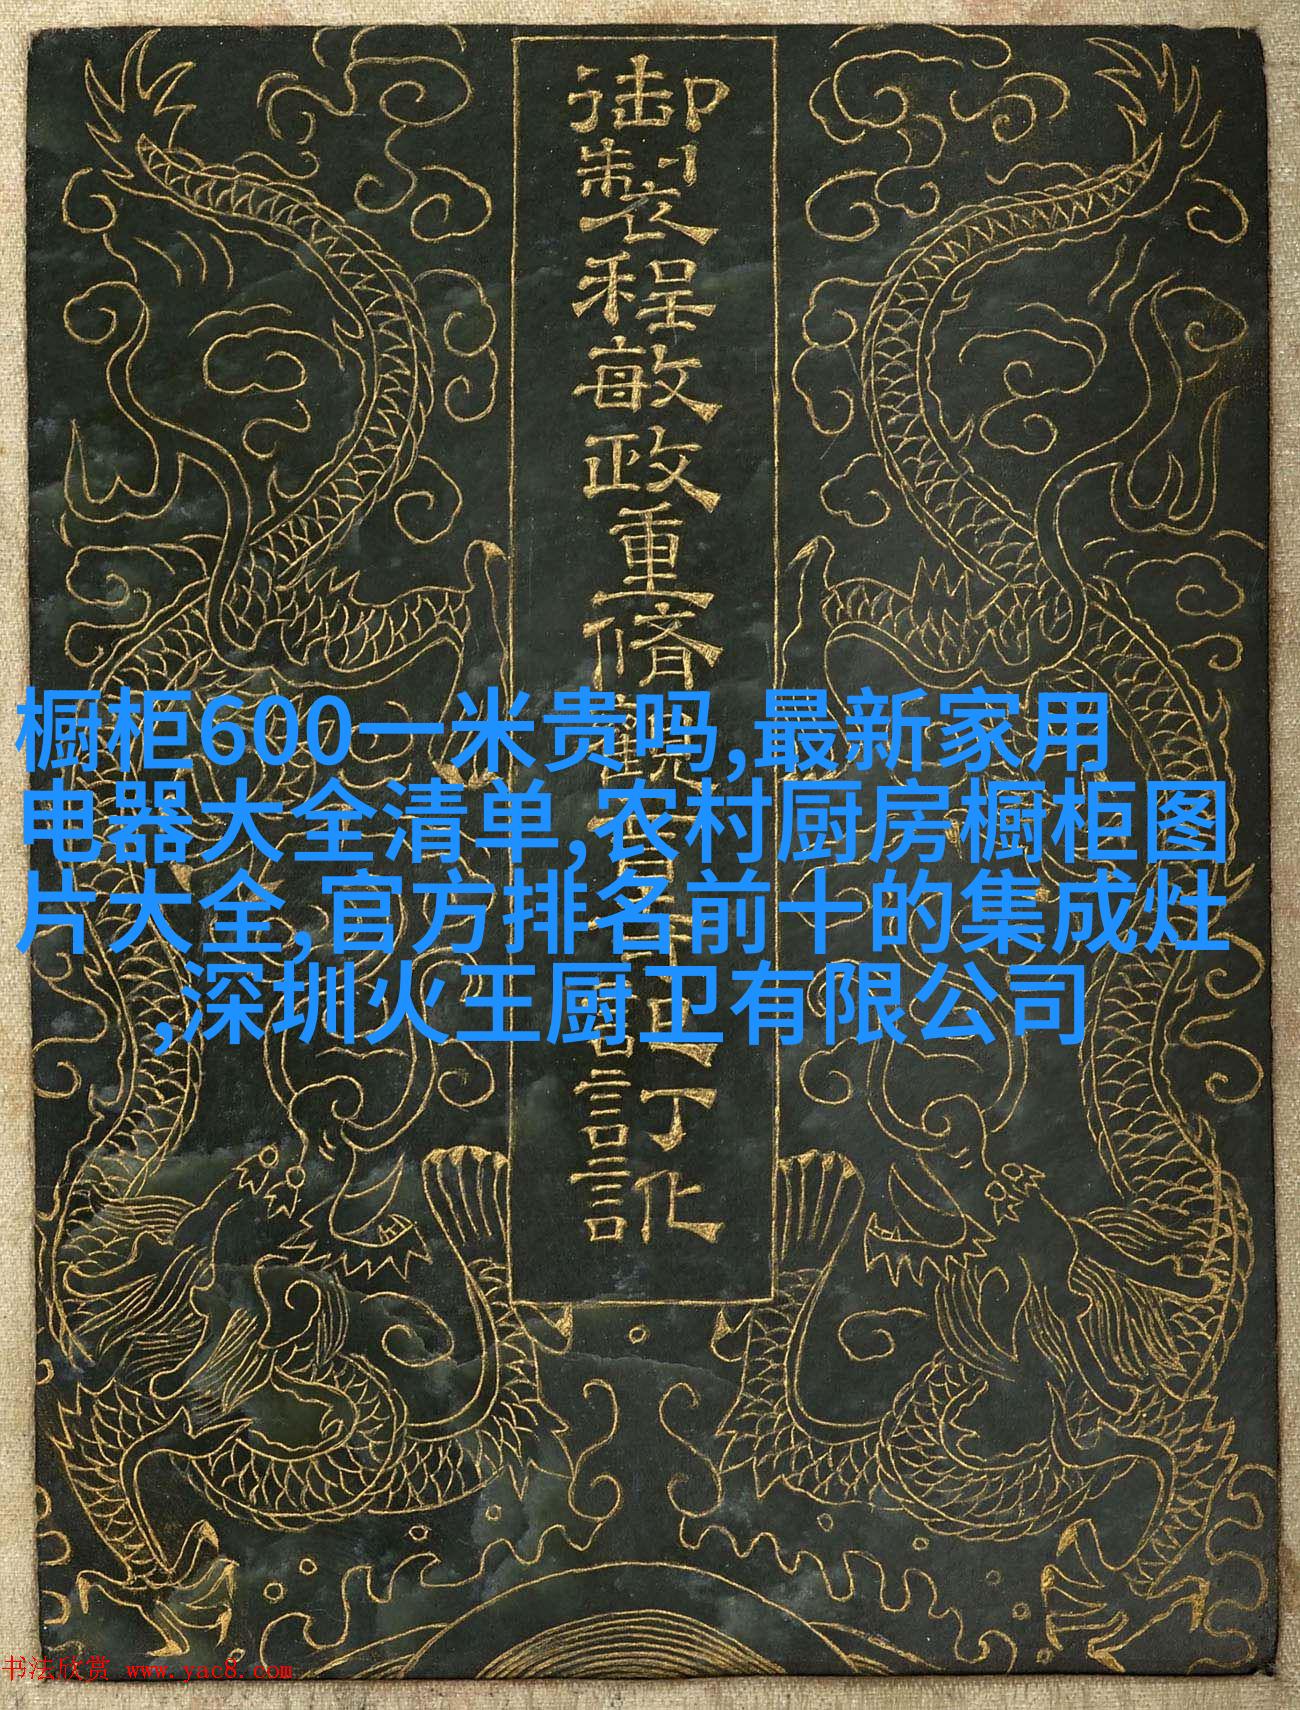 御製程敏政重脩
訂訛
橱柜600一米贵吗,最新家用
电器大全清单,农村厨房橱柜图
片大全,官方排名前十的集成灶
,深圳火王厨卫有限公司
书法欣赏 www.yac8.com